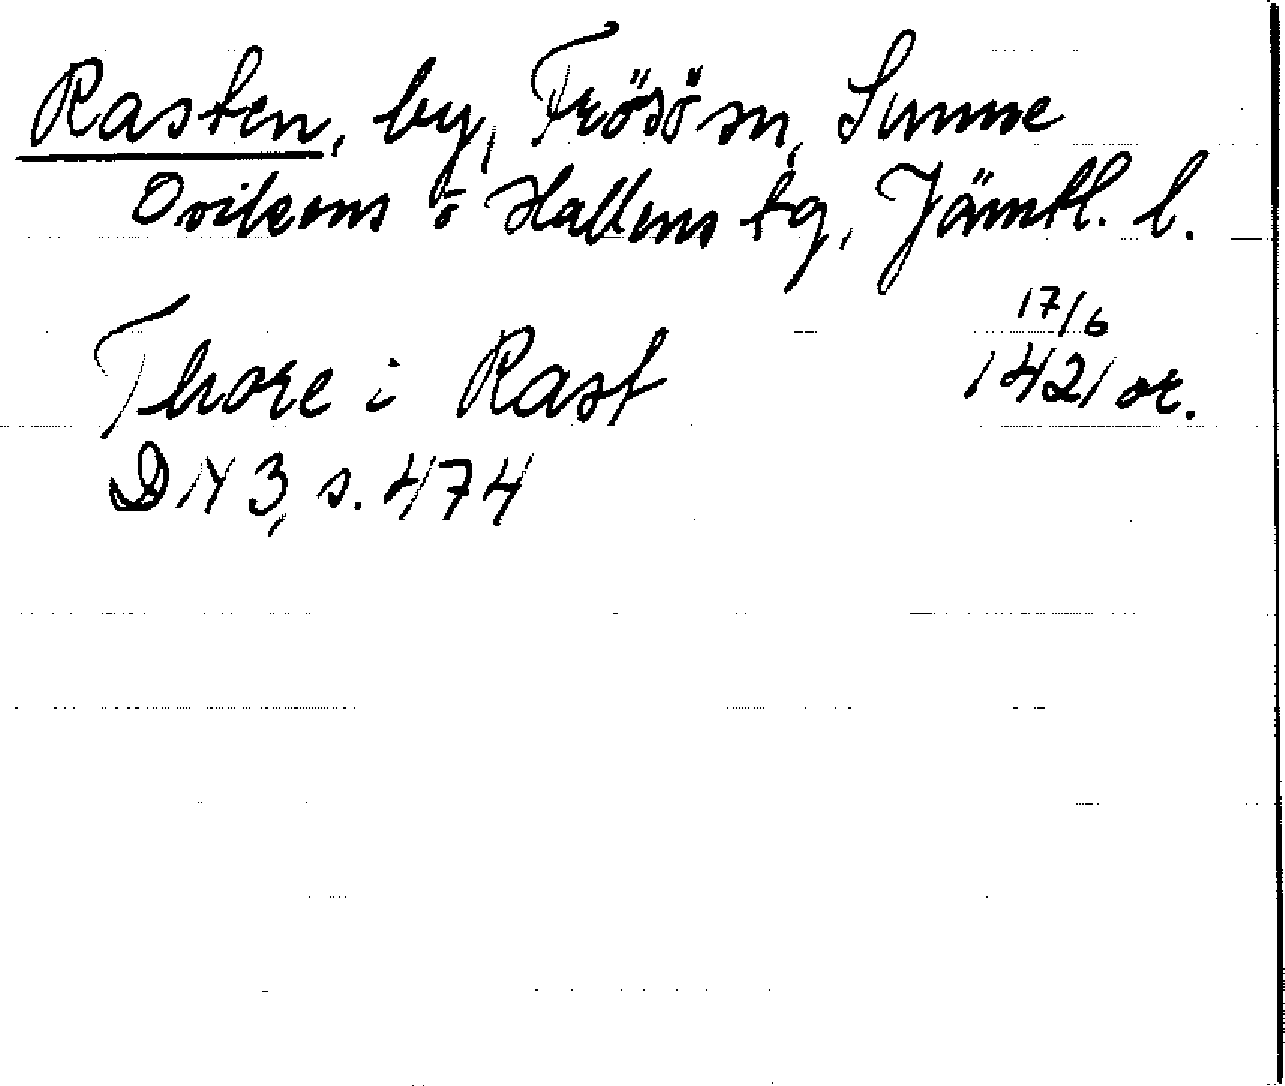 Rasten, by, Frösö sn, Sunne
Ovikens o Hallens tg, Jämtl. l.
17/6
Thore i Rast 1421 or.
DN 3, s. 474